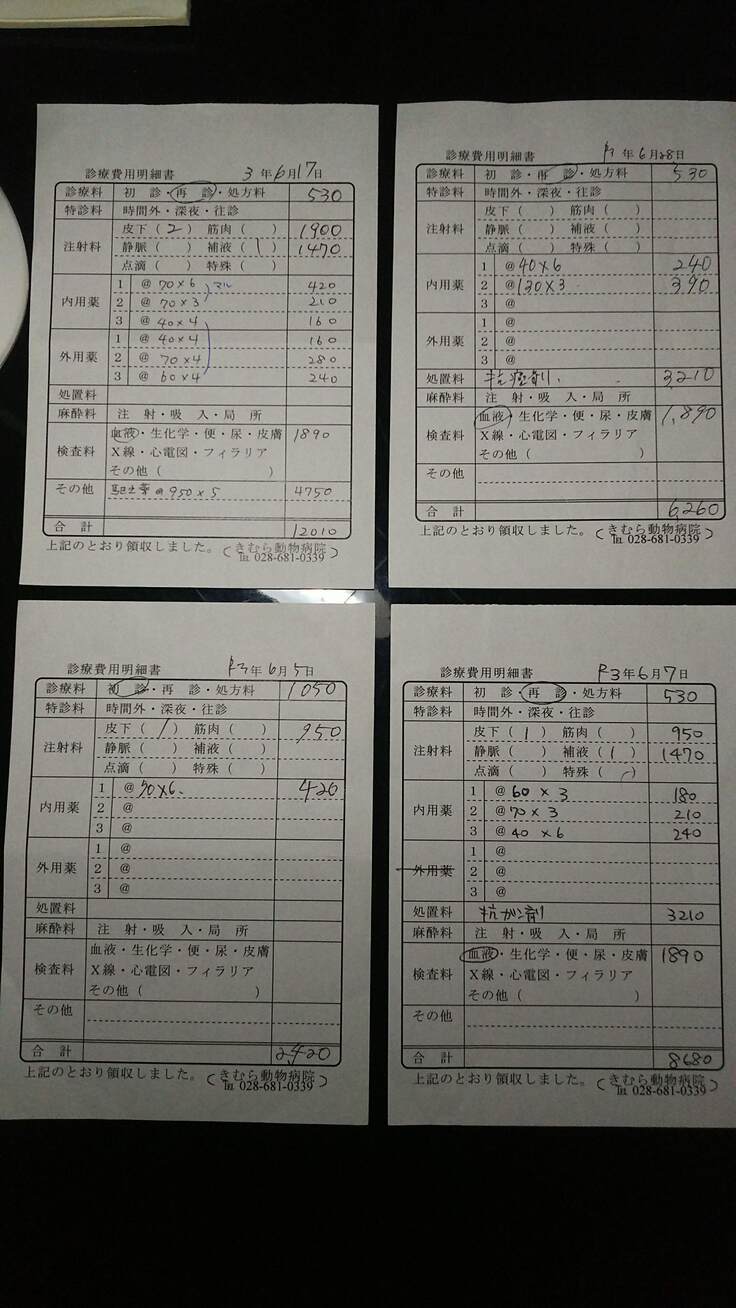 診療費用明細書 3年6月17日
診療料 初 診・再 診・処方料 530
特診料 時間外・深夜・往診
注射料 皮下(2) 筋肉( ) 1900
静脈( ) 補液(1) 1470
点滴( ) 特殊( )
内用薬 1 @ 70×6 420
2 @ 70×3 210
3 @ 40×4 160
外用薬 1 @ 40×4 160
2 @ 70×4 280
3 @ 60×4 240
処置料
麻酔料 注 射・吸 入・局 所
検査料 血液・生化学・便・尿・皮膚 1890
X線・心電図・フィラリア
その他( )
その他 @950×5 4750
合 計 12010
上記のとおり領収しました。(きむら動物病院)
℡ 028-681-0339
診療費用明細書 年6月28日
診療料 初 診・再 診・処方料 530
特診料 時間外・深夜・往診
注射料 皮下( ) 筋肉( )
静脈( ) 補液( )
点滴( ) 特殊( )
内用薬 1 @ 40×6 240
2 @ 130×3 390
3 @
外用薬 1 @
2 @
3 @
処置料 抗癌剤 3210
麻酔料 注 射・吸 入・局 所
検査料 血液・生化学・便・尿・皮膚 1,890
X線・心電図・フィラリア
その他( )
その他
合 計 6,260
上記のとおり領収しました。(きむら動物病院)
℡ 028-681-0339
診療費用明細書 R3年6月5日
診療料 初 診・再 診・処方料 1050
特診料 時間外・深夜・往診
注射料 皮下(1) 筋肉( ) 950
静脈( ) 補液( )
点滴( ) 特殊( )
内用薬 1 @ 70×6 420
2 @
3 @
外用薬 1 @
2 @
3 @
処置料
麻酔料 注 射・吸 入・局 所
検査料 血液・生化学・便・尿・皮膚
X線・心電図・フィラリア
その他( )
その他
合 計 2420
上記のとおり領収しました。(きむら動物病院)
℡ 028-681-0339
診療費用明細書 R3年6月7日
診療料 初 診・再 診・処方料 530
特診料 時間外・深夜・往診
注射料 皮下(1) 筋肉( ) 950
静脈( ) 補液(1) 1470
点滴( ) 特殊( )
内用薬 1 @ 60×3 180
2 @ 70×3 210
3 @ 40×6 240
外用薬 1 @
2 @
3 @
処置料 抗ガン剤 3210
麻酔料 注 射・吸 入・局 所
検査料 血液・生化学・便・尿・皮膚 1890
X線・心電図・フィラリア
その他( )
その他
合 計 8680
上記のとおり領収しました。(きむら動物病院)
℡ 028-681-0339